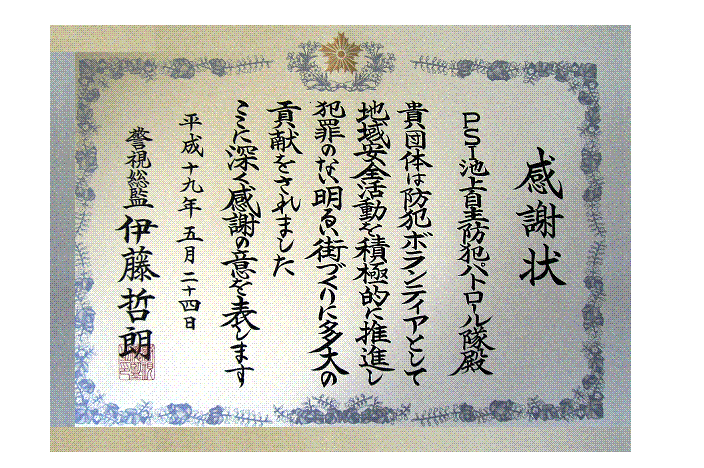 感謝状
PST池上自主防犯パトロール隊殿
貴団体は防犯ボランティアとして
地域安全活動を積極的に推進し
犯罪のない明るい街づくりに多大の
貢献をされました
ここに深く感謝の意を表します
平成十九年五月二十四日
警視総監 伊藤哲朗